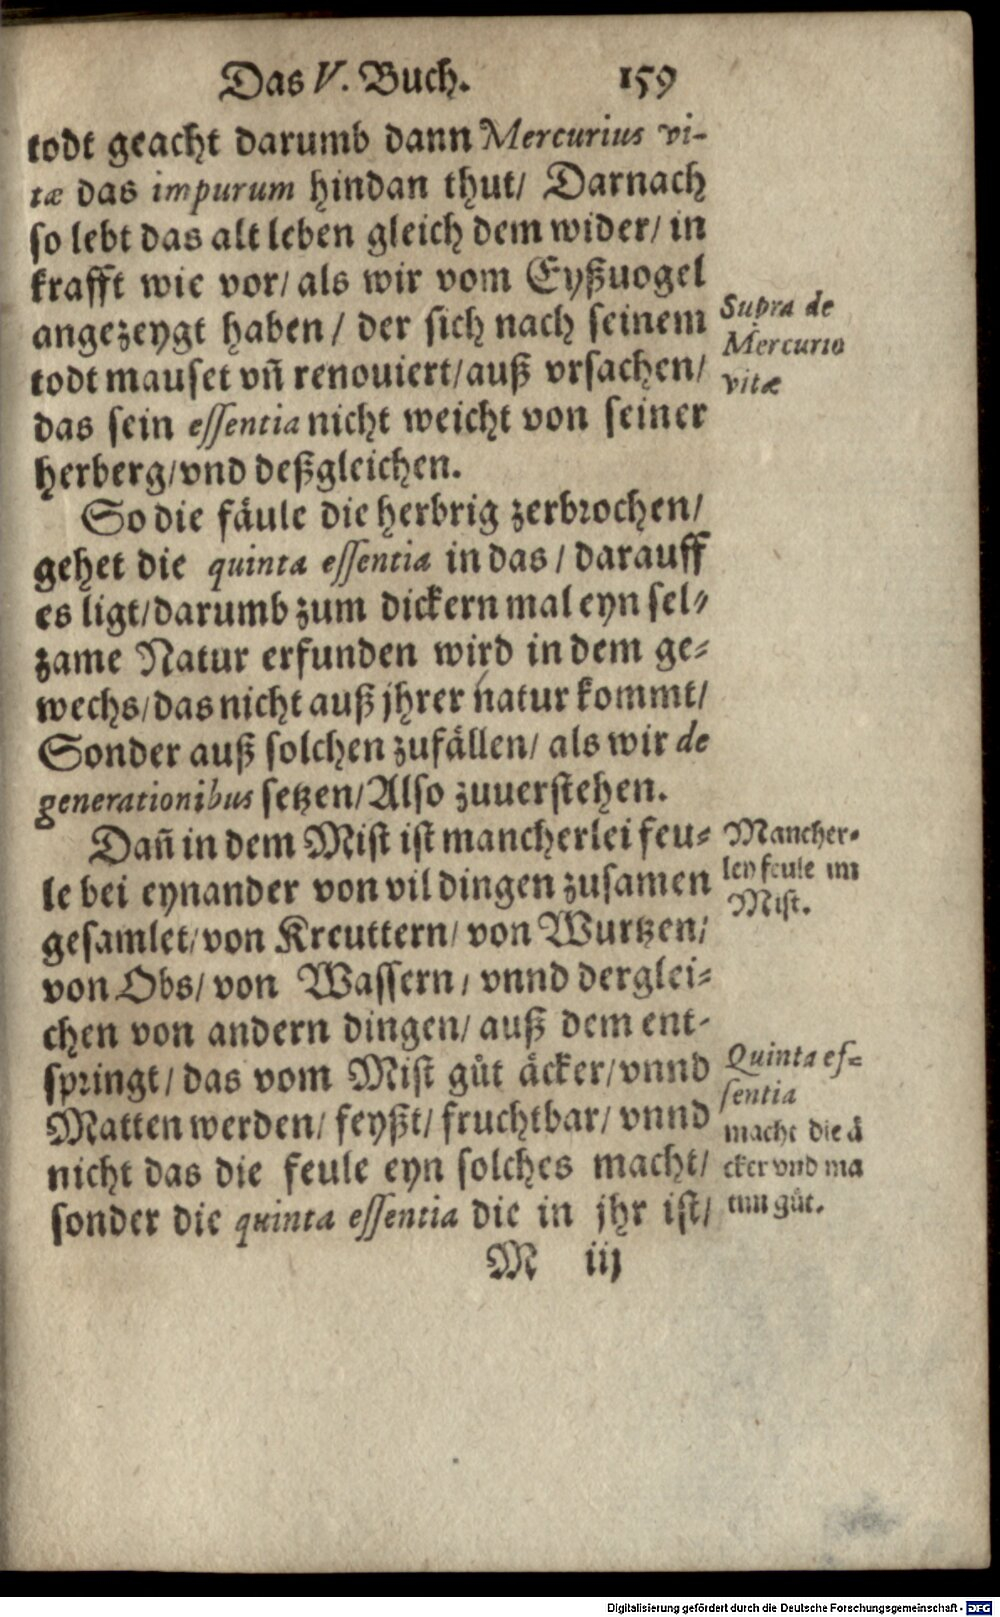 Das V. Buch. 159
todt geacht darumb dann Mercurius vi-
tæ das impurum hindan thut/ Darnach
so lebt das alt leben gleich dem wider/ in
krafft wie vor/ als wir vom Eyßuogel
angezeygt haben/ der sich nach seinem
todt mauset vñ renouiert/ auß vrsachen/
das sein essentia nicht weicht von seiner
herberg/ vnd deßgleichen.
Supra de
Mercurio
vitæ
So die fäule die herbrig zerbrochen/
gehet die quinta essentia in das/ darauff
es ligt/ darumb zum dickern mal eyn sel-
zame Natur erfunden wird in dem ge-
wechs/ das nicht auß jhrer natur kommt/
Sonder auß solchen zufällen/ als wir de
generationibus setzen/ Also zuuerstehen.
Dañ in dem Mist ist mancherlei feu-
le bei eynander von vil dingen zusamen
gesamlet/ von Kreuttern/ von Wurtzen/
von Obs/ von Wassern/ vnnd derglei-
chen von andern dingen/ auß dem ent-
springt/ das vom Mist gůt äcker/ vnnd
Matten werden/ feyßt/ fruchtbar/ vnnd
nicht das die feule eyn solches macht/
sonder die quinta essentia die in jhr ist/
Mancher-
ley feule im
Mist.
Quinta es-
sentia
macht die ä
cker vnd ma
tten gůt.
M iij
Digitalisierung gefördert durch die Deutsche Forschungsgemeinschaft - DFG